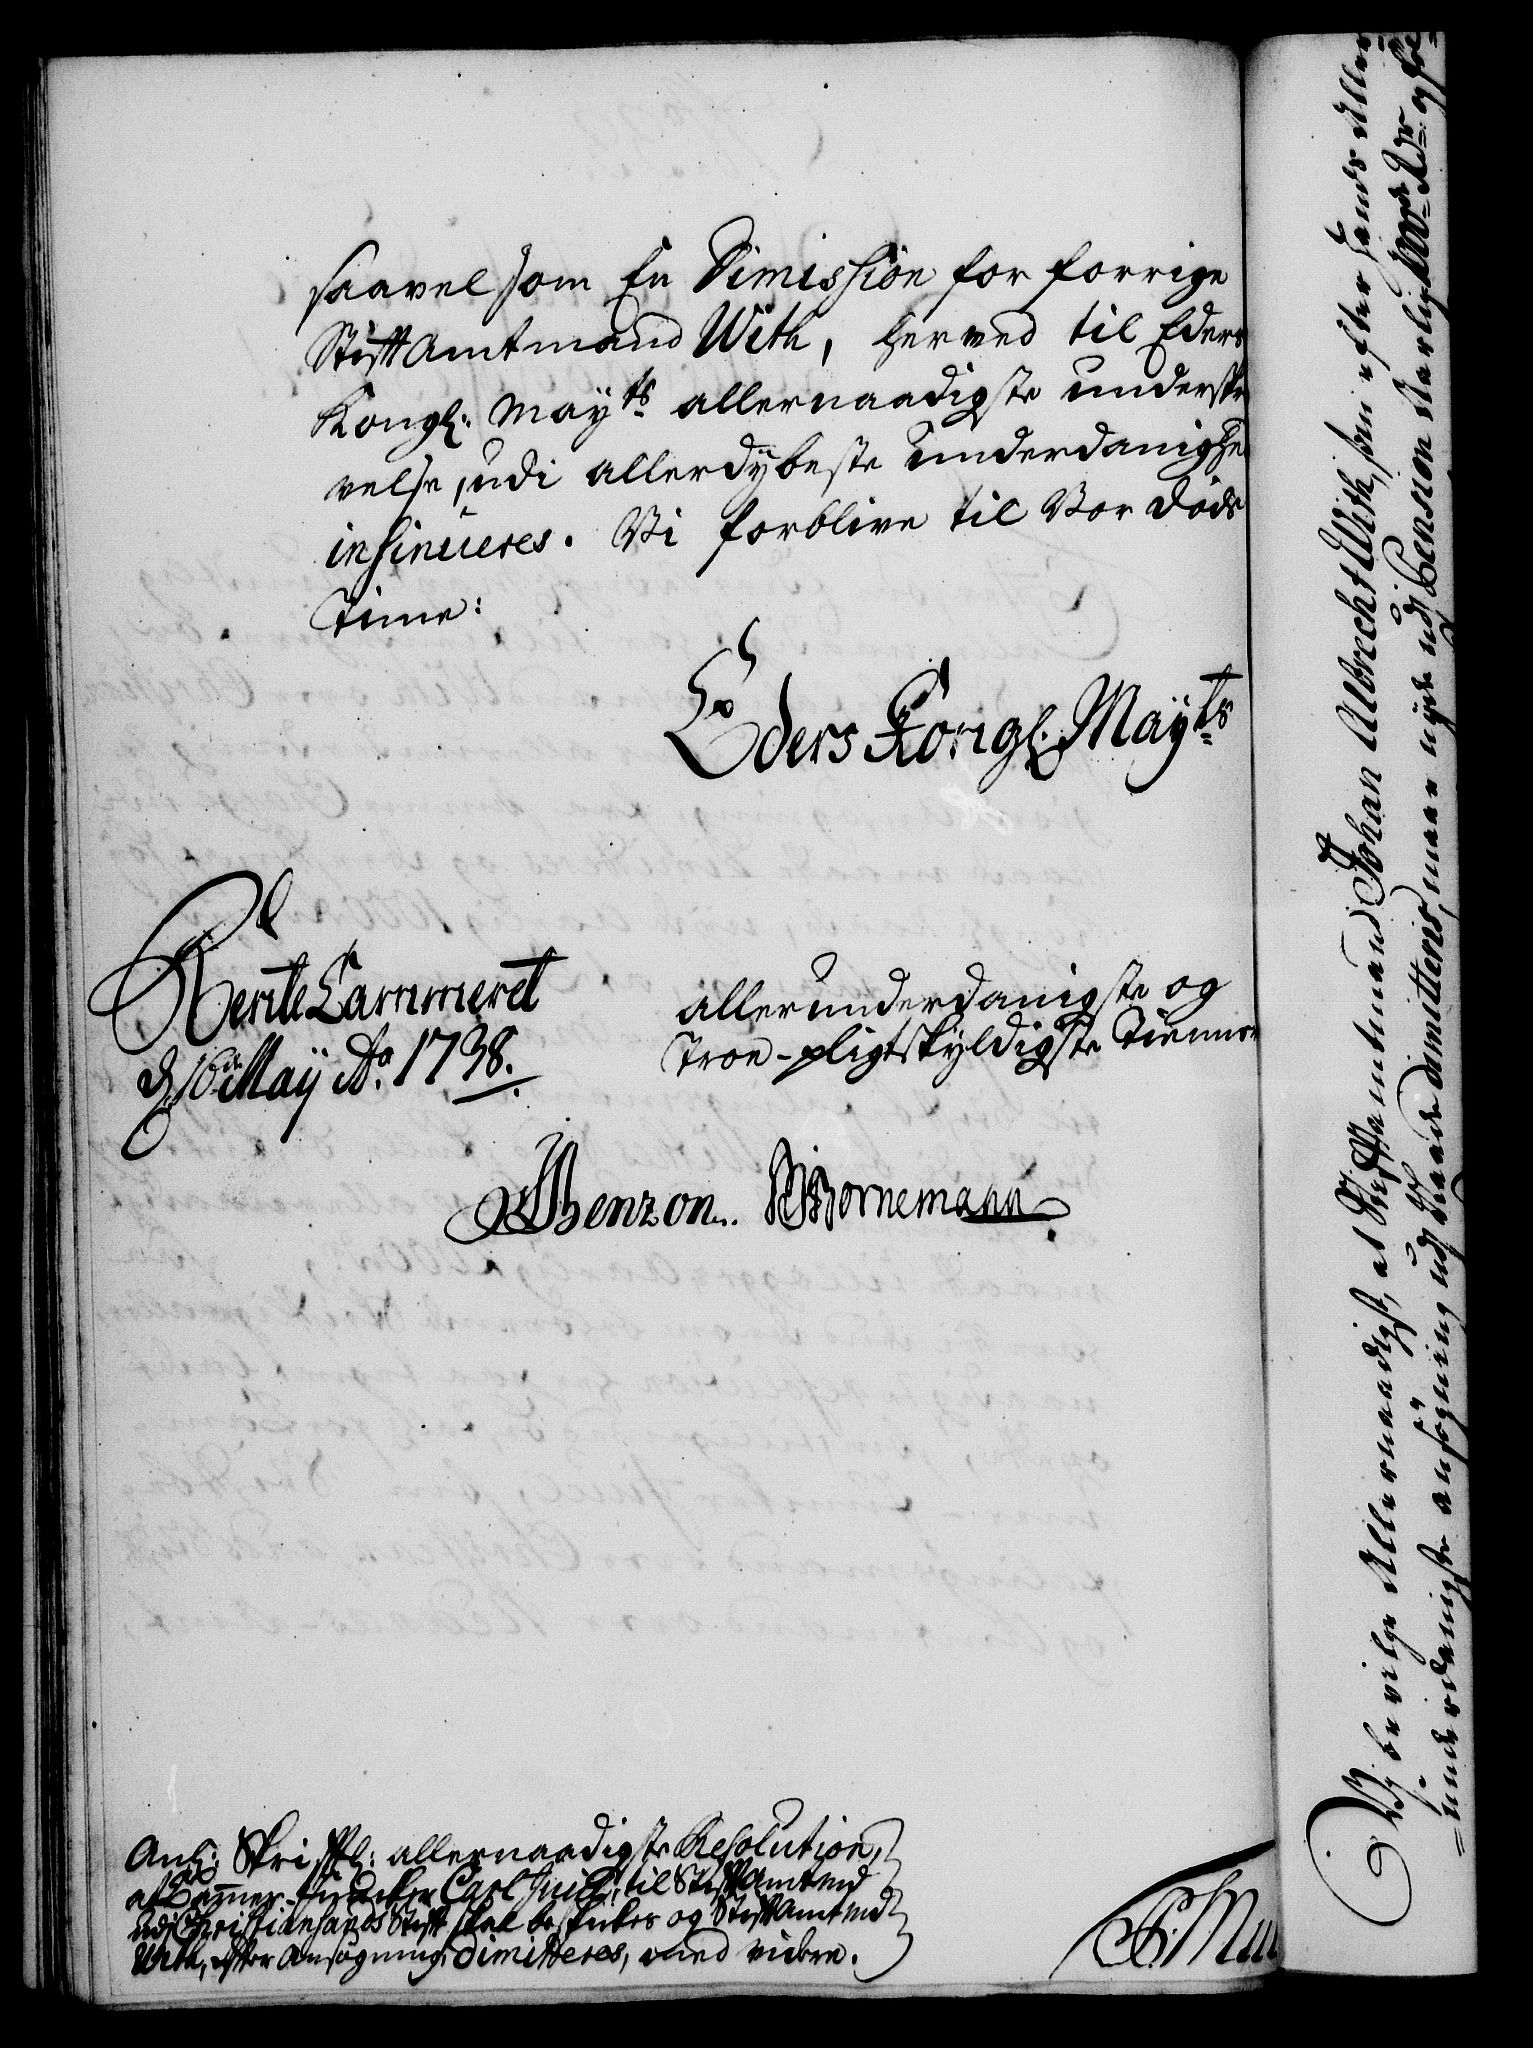 saavelsom En Dimission for forrige
Stiftamtmand With, herved til Eders
Kongl: Mayts allernaadigste underskri
velse, udi allerdybeste Underdanighed
insinueres. Vi forblive til Vor döds
Time:
Eders Kongl. Mayts
RenteCammeret
d. 16de Maÿ Ao. 1738.
allerunderdanigste og
troe-pligtskyldigste Tienere
Benzon. Bornemann
Anl: Skriftl: allernaadigste Resolution,
at Cammer-Juncker Carl Juel, til Stiftamtmd
udi Christiansands Stift skal beskikes og Stiftamtmd
With, efter Ansögning dimitteres, med videre.
Vj bevilge Allernaadigst, at Stiftamtmand Johan Albrecht With, som efter hands Aller
=underdanigste ansögning udj Naade dimitteris, maae nyde udj Pension Aarlig